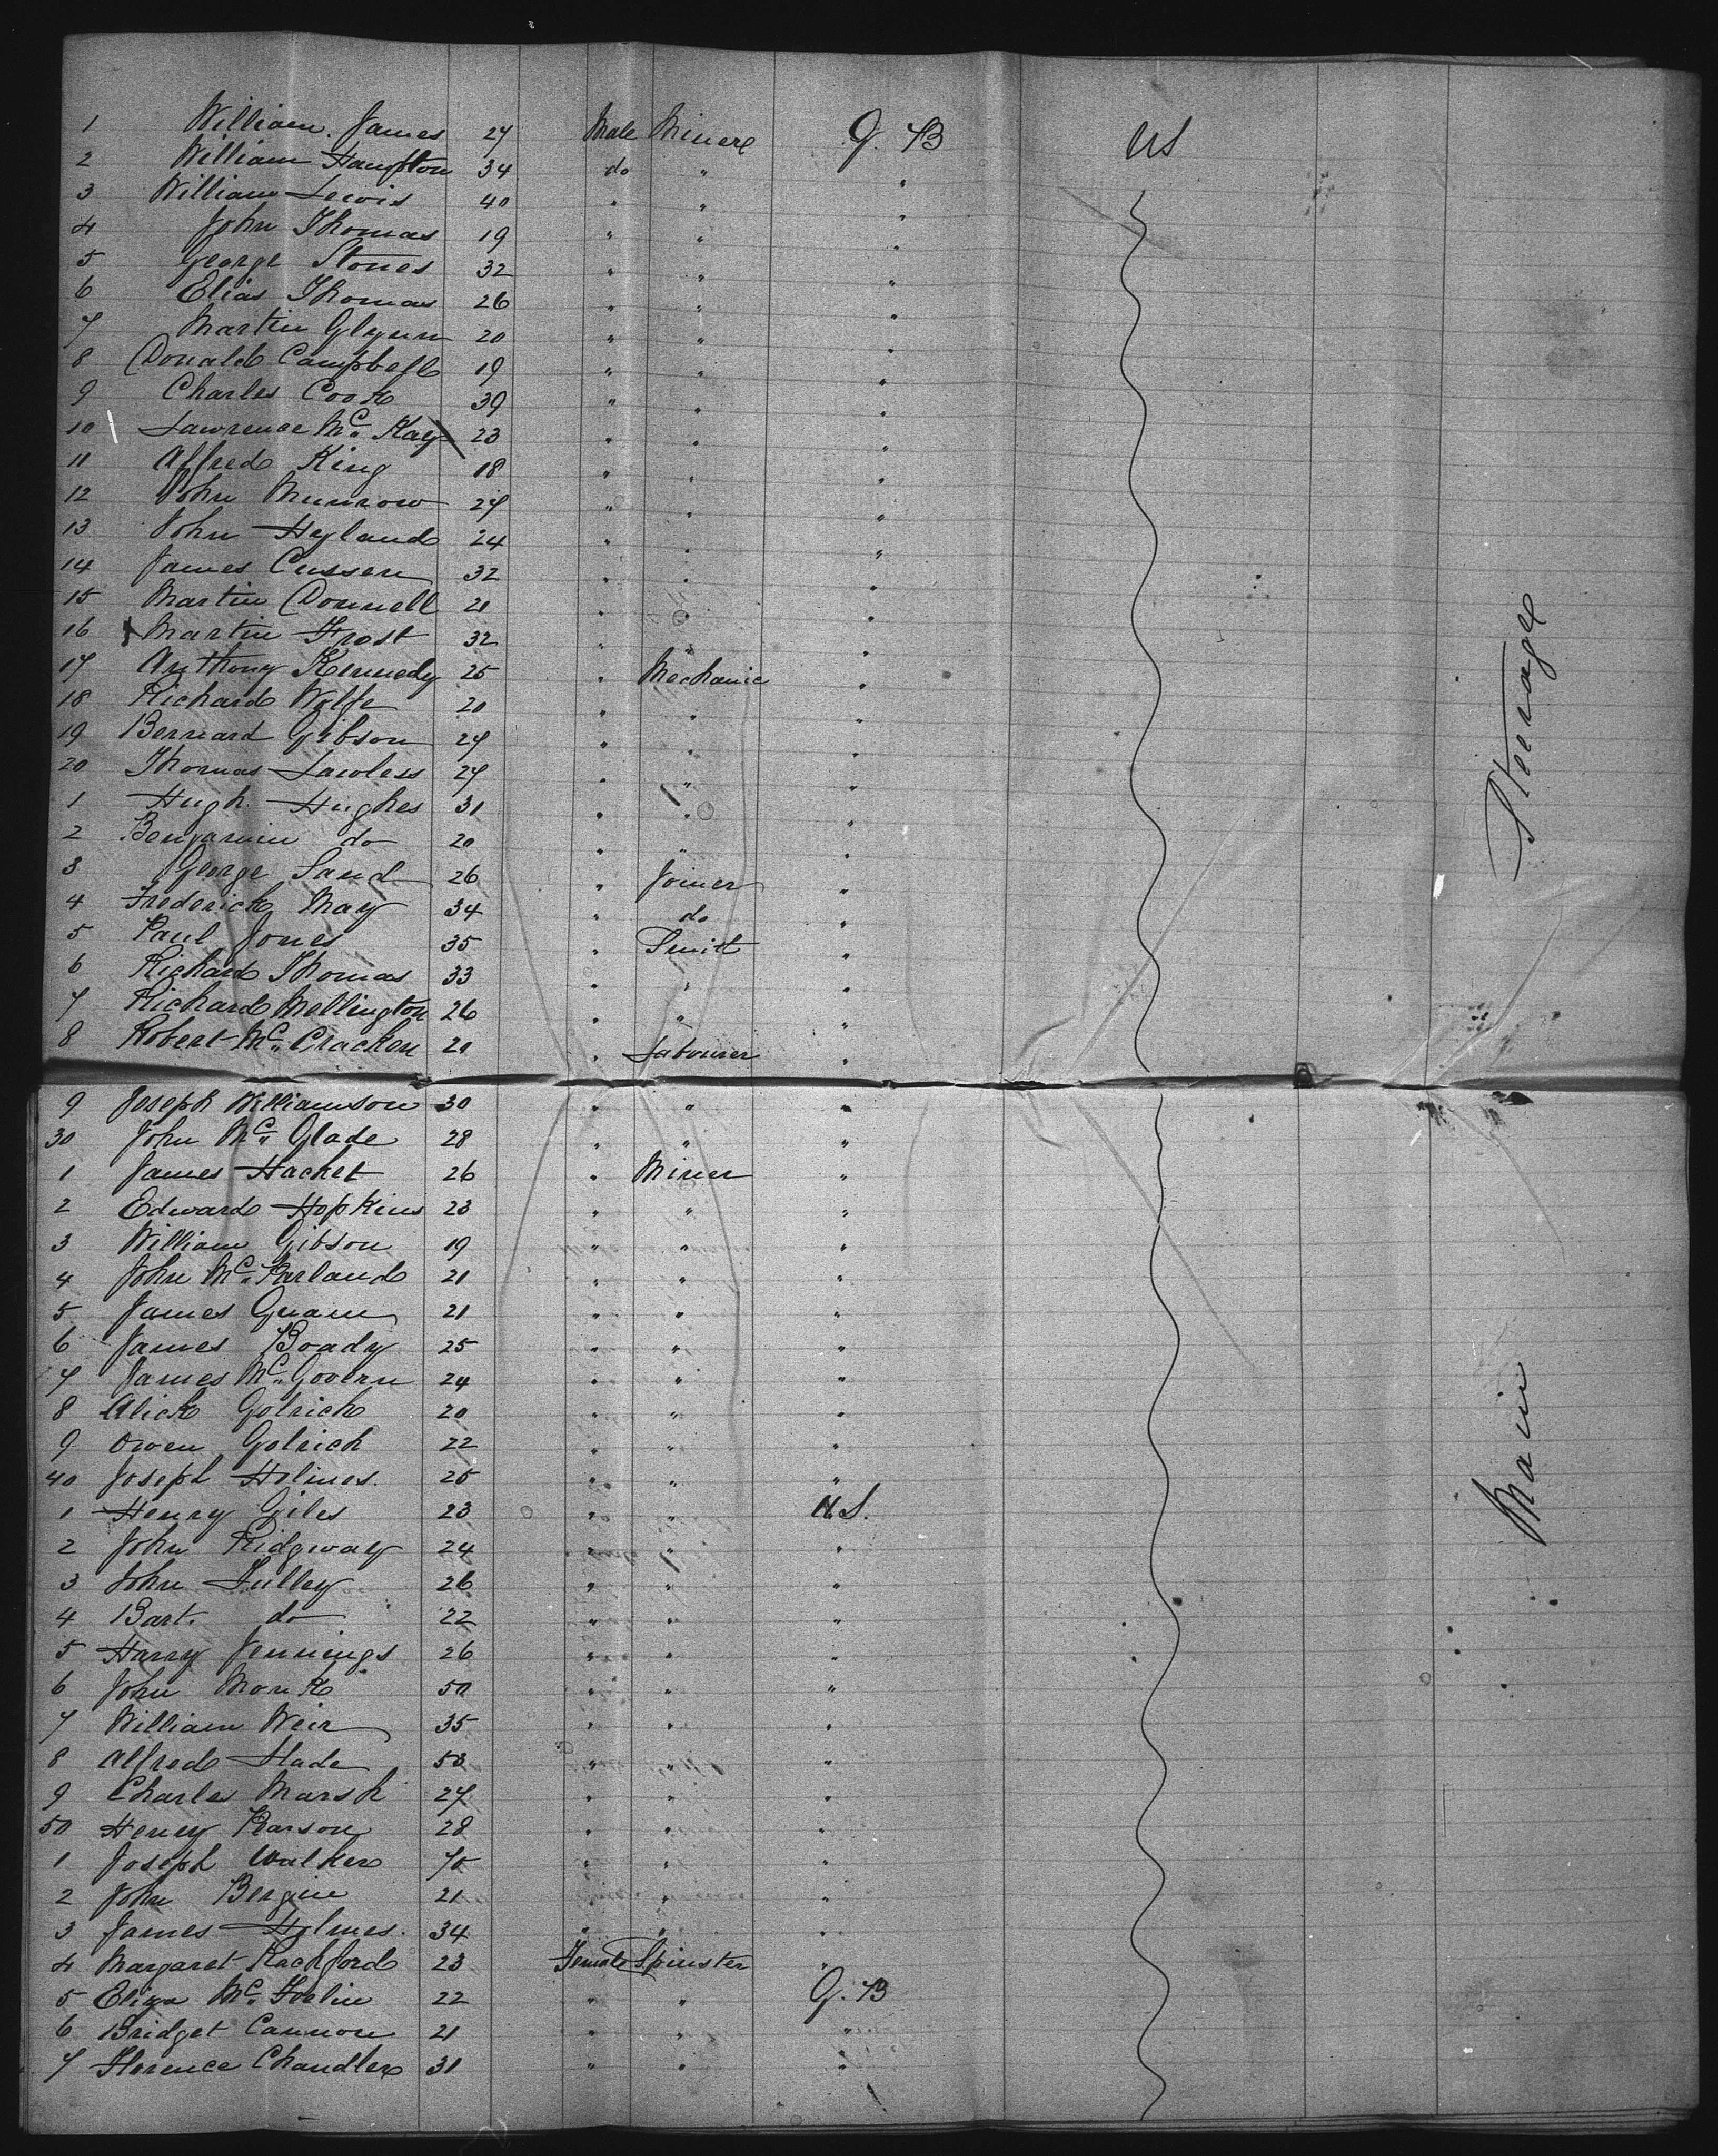 1 William James 27 Male Miner G. B US
2 William Hampton 34 do " "
3 William Lewis 40 " " "
4 John Thomas 19 " " "
5 George Stones 32 " " "
6 Elias Thomas 26 " " "
7 Martin Glynn 20 " " "
8 Donald Campbell 19 " " "
9 Charles Cook 39 " " "
10 Lawrence Mc Kay 23 " " "
11 Alfred King 18 " " "
12 John Munrow 27 " " "
13 John Hyland 24 " " "
14 James Cussen 32 " " "
15 Martin Donnell 21 " " "
16 Martin Frost 32 " " "
17 Anthony Kennedy 25 " Mechanic "
18 Richard Wolfe 20 " " "
19 Bernard Gibson 27 " " "
20 Thomas Lawless 27 " " "
1 Hugh Hughes 31 " " "
2 Benjamin do 20 " " "
3 George Sand 26 " Joiner "
4 Frederick May 34 " do "
5 Paul Jones 35 " Smith "
6 Richard Thomas 33 " " "
7 Richard Mellington 26 " " "
8 Robert Mc Cracken 21 " Labourer "
9 Joseph Williamson 30 " " "
30 John Mc Glade 28 " " "
1 James Hacket 26 " Miner "
2 Edward Hopkins 23 " " "
3 William Gibson 19 " " "
4 John Mc Parland 21 " " "
5 James 21 " " "
6 James Boady 25 " " "
7 James Mc Govern 24 " " "
8 Alick Golrick 20 " " "
9 Owen Golrich 22 " " "
40 Joseph Holmes. 25 " " "
1 Henry Giles 23 " " US.
2 John Ridgway 24 " " "
3 John Tulley 26 " " "
4 Bart. do 22 " " "
5 Harry Jennings 26 " " "
6 John Monk 50 " " "
7 William Weir 35 " " "
8 Alfred Slade 53 " " "
9 Charles Marsh 27 " " "
50 Henry Pearson 28 " " "
1 Joseph Walker " " "
2 John Bergin 21 " " "
3 James Holmes. 34 " " "
4 Margaret Rachford 23 Female Spinster "
5 Eliza Mc 22 " " G. B
6 Bridget Cannon 21 " " "
7 Florence Chandler 31 " " "
Steerage
Main